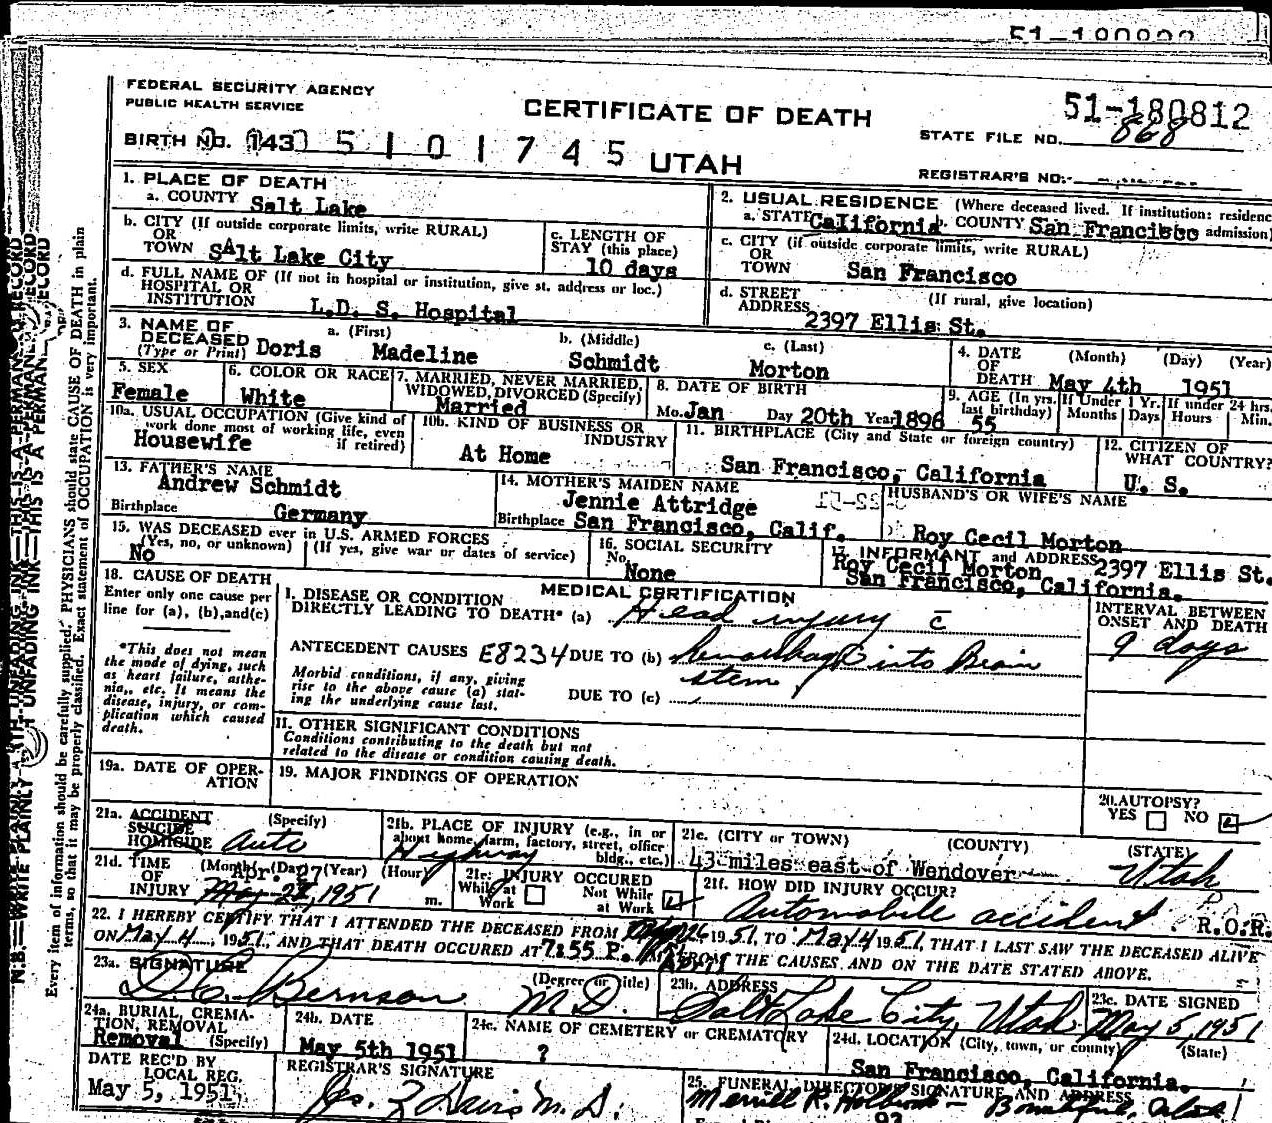 51-180822
FEDERAL SECURITY AGENCY
PUBLIC HEALTH SERVICE
CERTIFICATE OF DEATH
51-180812
STATE FILE NO. 868
BIRTH NO. 143 5101745 UTAH
REGISTRAR'S NO.
1. PLACE OF DEATH
a. COUNTY Salt Lake
2. USUAL RESIDENCE (Where deceased lived. If institution: residence
a. STATE California b. COUNTY San Francisco admission)
b. CITY (If outside corporate limits, write RURAL)
OR
TOWN SAlt Lake City
c. LENGTH OF
STAY (this place)
10 days
c. CITY (if outside corporate limits, write RURAL)
OR
TOWN San Francisco
d. FULL NAME OF (If not in hospital or institution, give st. address or loc.)
HOSPITAL OR
INSTITUTION L.D. S. Hospital
d. STREET (If rural, give location)
ADDRESS 2397 Ellis St.
3. NAME OF a. (First) b. (Middle) c. (Last)
DECEASED
(Type or Print) Doris Madeline Schmidt Morton
4. DATE (Month) (Day) (Year)
OF
DEATH May 4th 1951
5. SEX
Female
6. COLOR OR RACE
White
7. MARRIED, NEVER MARRIED,
WIDOWED, DIVORCED (Specify)
Married
8. DATE OF BIRTH
Mo. Jan Day 20th Year 1896
9. AGE (In yrs.
last birthday)
55
If Under 1 Yr.
Months Days
If under 24 hrs.
Hours Min.
10a. USUAL OCCUPATION (Give kind of
work done most of working life, even
if retired)
Housewife
10b. KIND OF BUSINESS OR
INDUSTRY
At Home
11. BIRTHPLACE (City and State or foreign country)
San Francisco, California
12. CITIZEN OF
WHAT COUNTRY?
U. S.
13. FATHER'S NAME
Andrew Schmidt
Birthplace Germany
14. MOTHER'S MAIDEN NAME
Jennie Attridge
Birthplace San Francisco, Calif.
HUSBAND'S OR WIFE'S NAME
Roy Cecil Morton
15. WAS DECEASED ever in U.S. ARMED FORCES
(Yes, no, or unknown) (If yes, give war or dates of service)
No
16. SOCIAL SECURITY
No.
None
17. INFORMANT and ADDRESS
Roy Cecil Morton 2397 Ellis St.
San Francisco, California.
18. CAUSE OF DEATH
Enter only one cause per
line for (a), (b), and (c)
*This does not mean
the mode of dying, such
as heart failure, asthe-
nia, etc. It means the
disease, injury, or com-
plication which caused
death.
MEDICAL CERTIFICATION
I. DISEASE OR CONDITION
DIRECTLY LEADING TO DEATH* (a) Head injury c̄
ANTECEDENT CAUSES E8234 DUE TO (b) hemorrhage into Brain
stem
Morbid conditions, if any, giving
rise to the above cause (a) stat-
ing the underlying cause last.
DUE TO (c)
INTERVAL BETWEEN
ONSET AND DEATH
9 days
II. OTHER SIGNIFICANT CONDITIONS
Conditions contributing to the death but not
related to the disease or condition causing death.
19a. DATE OF OPER-
ATION
19. MAJOR FINDINGS OF OPERATION
20. AUTOPSY?
YES NO
21a. ACCIDENT (Specify)
SUICIDE
HOMICIDE Auto
21b. PLACE OF INJURY (e.g., in or
about home, farm, factory, street, office
bldg., etc.)
Highway
21c. (CITY or TOWN) (COUNTY) (STATE)
43 miles east of Wendover Utah
21d. TIME (Month) (Day) (Year) (Hour)
OF Apr. 27
INJURY 1951 m.
21e. INJURY OCCURED
While at Work
Not While at Work
21f. HOW DID INJURY OCCUR?
Automobile accident R.O.R.
22. I HEREBY CERTIFY THAT I ATTENDED THE DECEASED FROM 26 1951, TO May 4 1951, THAT I LAST SAW THE DECEASED ALIVE
ON May 4, 1951, AND THAT DEATH OCCURED AT 7:55 P. M. FROM THE CAUSES AND ON THE DATE STATED ABOVE.
April
23a. SIGNATURE (Degree or Title)
D.C. Bernson M.D.
23b. ADDRESS
Salt Lake City, Utah
23c. DATE SIGNED
May 5, 1951
24a. BURIAL, CREMA-
TION, REMOVAL
(Specify)
Removal
24b. DATE
May 5th 1951
24c. NAME OF CEMETERY or CREMATORY
?
24d. LOCATION (City, town, or county) (State)
San Francisco, California.
DATE REC'D BY
LOCAL REG.
May 5, 1951
REGISTRAR'S SIGNATURE
Jas. Z Davis M.D.
25. FUNERAL DIRECTOR'S SIGNATURE AND ADDRESS
Merrill R. Holbrook - Bountiful, Utah
93
N.B.—WRITE PLAINLY WITH UNFADING INK—THIS IS A PERMANENT RECORD
Every item of information should be carefully supplied. PHYSICIANS should state CAUSE OF DEATH in plain
terms, so that it may be properly classified. Exact statement of OCCUPATION is very important.